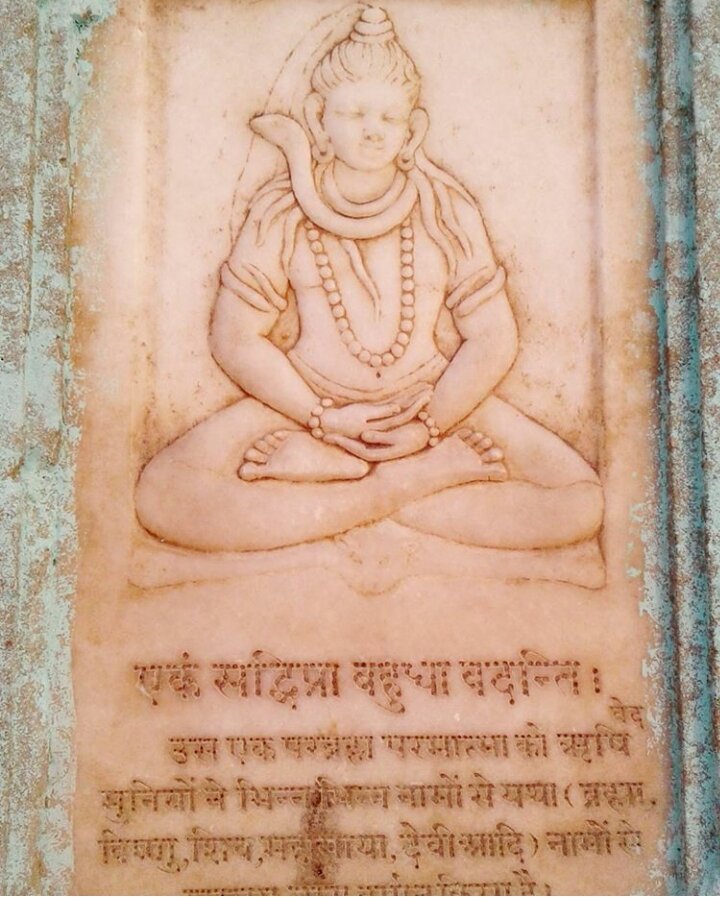 एकं सद्विप्रा वहुधा वदन्ति।
वेद
उस एक परब्रह्म परमात्मा को ऋषि
मुनियों ने भिन्न भिन्न नामों से यथा ( ब्रह्मा,
विष्णु, शिव, महामाया, देवी आदि) नामों से